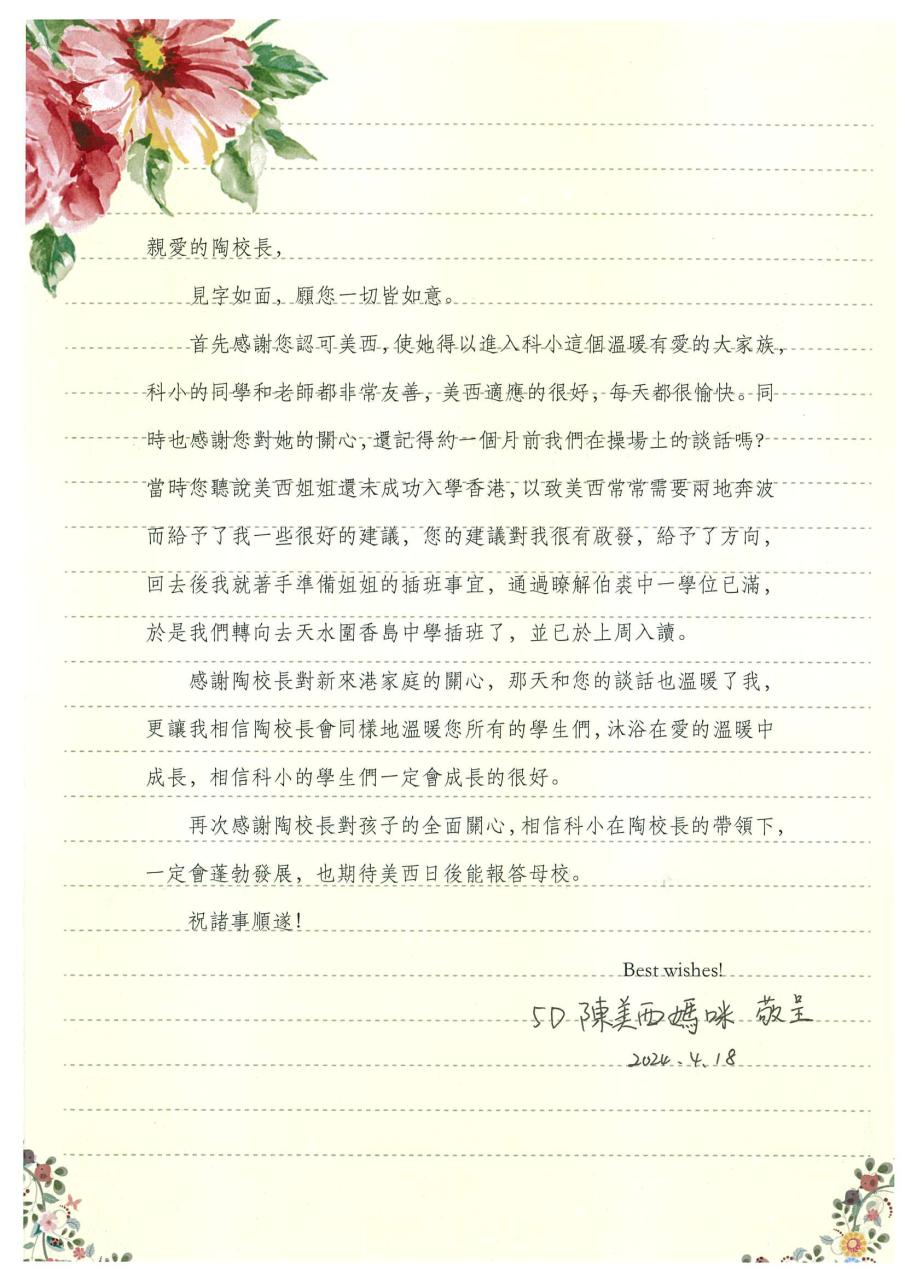 親愛的陶校長，
見字如面，願您一切皆如意。
首先感謝您認可美西，使她得以進入科小這個溫暖有愛的大家族，
科小的同學和老師都非常友善，美西適應的很好，每天都很愉快。同
時也感謝您對她的關心，還記得約一個月前我們在操場上的談話嗎？
當時您聽說美西姐姐還末成功入學香港，以致美西常常需要兩地奔波
而給予了我一些很好的建議，您的建議對我很有啟發，給予了方向，
回去後我就著手準備姐姐的插班事宜，通過瞭解伯裘中一學位已滿，
於是我們轉向去天水圍香島中學插班了，並已於上周入讀。
感謝陶校長對新來港家庭的關心，那天和您的談話也溫暖了我，
更讓我相信陶校長會同樣地溫暖您所有的學生們，沐浴在愛的溫暖中
成長，相信科小的學生們一定會成長的很好。
再次感謝陶校長對孩子的全面關心，相信科小在陶校長的帶領下，
一定會蓬勃發展，也期待美西日後能報答母校。
祝諸事順遂！
Best wishes!
5D 陳美西媽咪 敬呈
2024.4.18